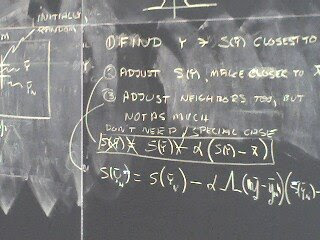 INITIALLY
RANDOM
① FIND Y ∋ S(Ȳ) CLOSEST TO
② ADJUST S(Ȳ), MAKE CLOSER TO X̄
③ ADJUST NEIGHBORS TOO, BUT
NOT AS MUCH
DON'T NEED / SPECIAL CASE
S(Ȳ) = S(Ȳ) - α(S(Ȳ) - X̄)
= S( ) - α Λ(